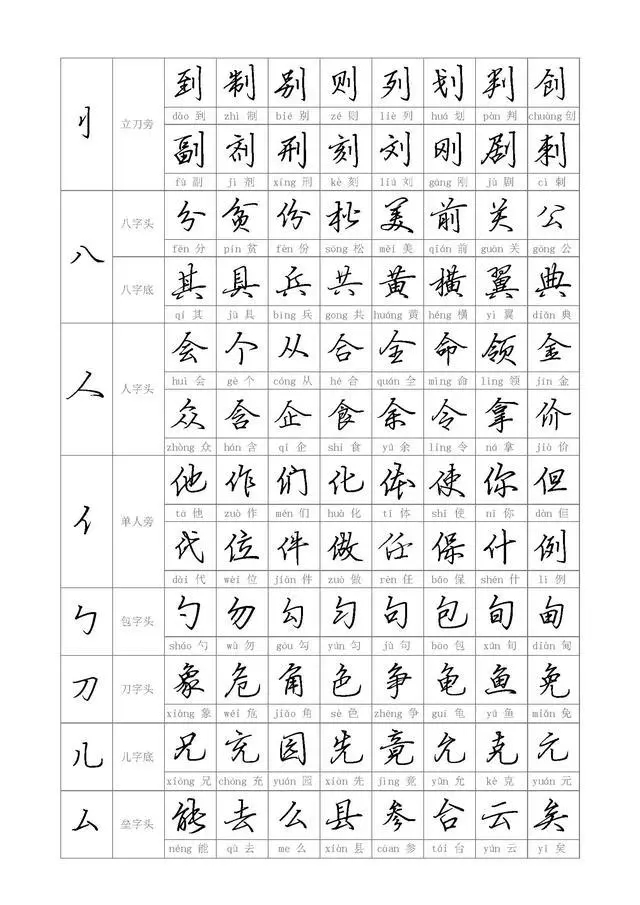 刂 立刀旁 到 制 别 则 列 划 判 创
dào 到 zhì 制 bié 别 zé 则 liè 列 huá 划 pàn 判 chuàng 创
副 剂 刑 刻 刘 刚 剧 刺
fù 副 jì 剂 xíng 刑 kè 刻 liú 刘 gāng 刚 jù 剧 cì 刺
八 八字头 分 贫 份 松 美 前 关 公
fēn 分 pín 贫 fèn 份 sōng 松 měi 美 qián 前 guān 关 gōng 公
八字底 其 具 兵 共 黄 横 翼 典
qí 其 jù 具 bīng 兵 gong 共 huáng 黄 héng 横 yì 翼 diǎn 典
人 人字头 会 个 从 合 全 命 领 金
huì 会 gè 个 cóng 从 hé 合 quán 全 mìng 命 lǐng 领 jīn 金
众 含 企 食 余 令 拿 价
zhòng 众 hán 含 qǐ 企 shí 食 yú 余 lìng 令 ná 拿 jià 价
亻 单人旁 他 作 们 化 体 使 你 但
tā 他 zuò 作 mén 们 huà 化 tǐ 体 shǐ 使 nǐ 你 dàn 但
代 位 件 做 任 保 什 例
dài 代 wèi 位 jiàn 件 zuò 做 rèn 任 bǎo 保 shén 什 lì 例
勹 包字头 勺 勿 勾 匀 句 包 旬 甸
sháo 勺 wù 勿 gōu 勾 yún 匀 jù 句 bāo 包 xún 旬 diàn 甸
刀 刀字头 象 危 角 色 争 龟 鱼 免
xiàng 象 wēi 危 jiǎo 角 sè 色 zhēng 争 guī 龟 yú 鱼 miǎn 免
儿 儿字底 兄 充 园 先 竟 允 克 元
xiōng 兄 chōng 充 yuán 园 xiān 先 jìng 竟 yǔn 允 kè 克 yuán 元
厶 垒字头 能 去 么 县 参 台 云 矣
néng 能 qù 去 me 么 xiàn 县 cān 参 tái 台 yún 云 yǐ 矣